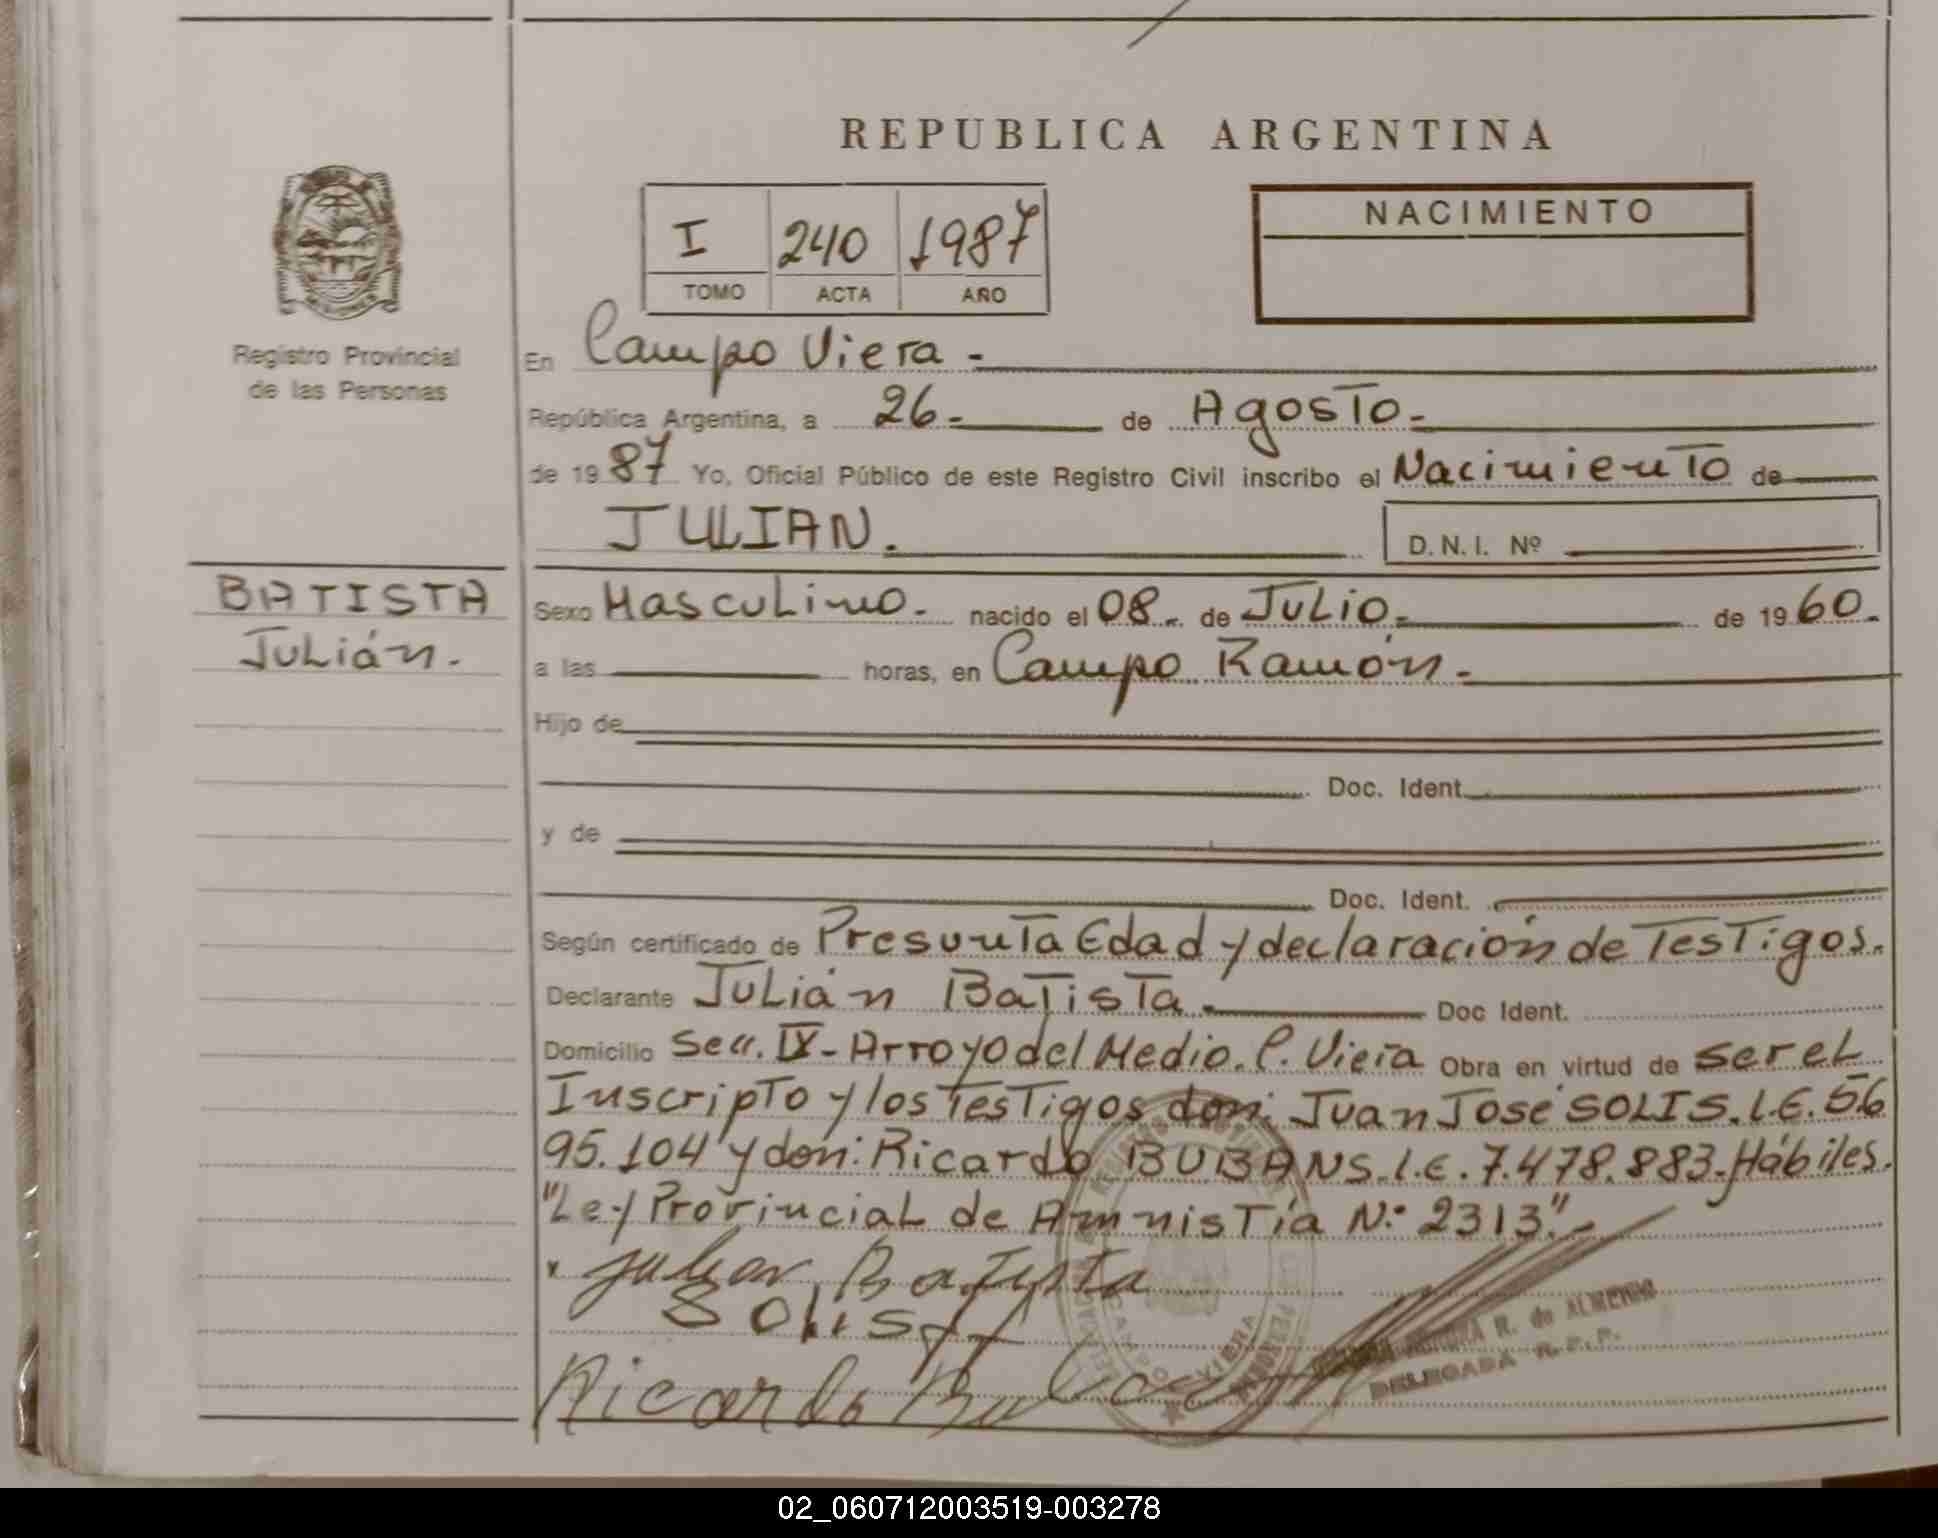 REPUBLICA ARGENTINA
I 240 1987
TOMO ACTA AÑO
NACIMIENTO
Registro Provincial
de las Personas
En Campo Viera.-
República Argentina, a 26.- de Agosto.-
de 1987 Yo, Oficial Público de este Registro Civil inscribo el Nacimiento de
JULIAN. D.N.I. Nº
BATISTA
Julián.-
Sexo Masculino.- nacido el 08.- de Julio.- de 1960.-
a las horas, en Campo Ramón.-
Hijo de
Doc. Ident.
y de
Doc. Ident.
Según certificado de Presunta Edad y declaración de Testigos.-
Declarante Julián Batista.- Doc Ident.
Domicilio Secc. IX-Arroyo del Medio.C. Viera Obra en virtud de ser el
Inscripto y los Testigos don: Juan José SOLIS.L.E. 56
95.104 y don: Ricardo BUBANS.L.E.7.478.883.-Hábiles.
"Ley Provincial de Amnistía N.º 2313".-
Batista
SOLIS
Ricardo
R. de ALMEIDA
DELEGADA R.P.P.
CAMPO VIERA
02_060712003519-003278